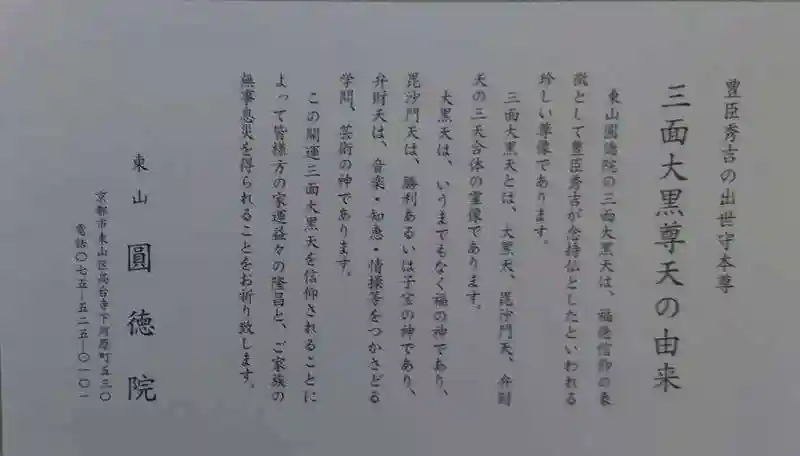 豊臣秀吉の出世守本尊
三面大黒尊天の由来
東山圓徳院の三面大黒天は、福徳信仰の象
徴として豊臣秀吉が念持仏としたといわれる
珍しい尊像であります。
三面大黒天とは、大黒天、毘沙門天、弁財
天の三天合体の霊像であります。
大黒天は、いうまでもなく福の神であり、
毘沙門天は、勝利あるいは子宝の神であり、
弁財天は、音楽・知恵・情操等をつかさどる
学問、芸術の神であります。
この開運三面大黒天を信仰されることに
よって皆様方の家運益々の隆昌と、ご家族の
無事息災を得られることをお祈り致します。
東山 圓徳院
京都市東山区高台寺下河原町五三〇
電話〇七五―五二五―〇一〇一